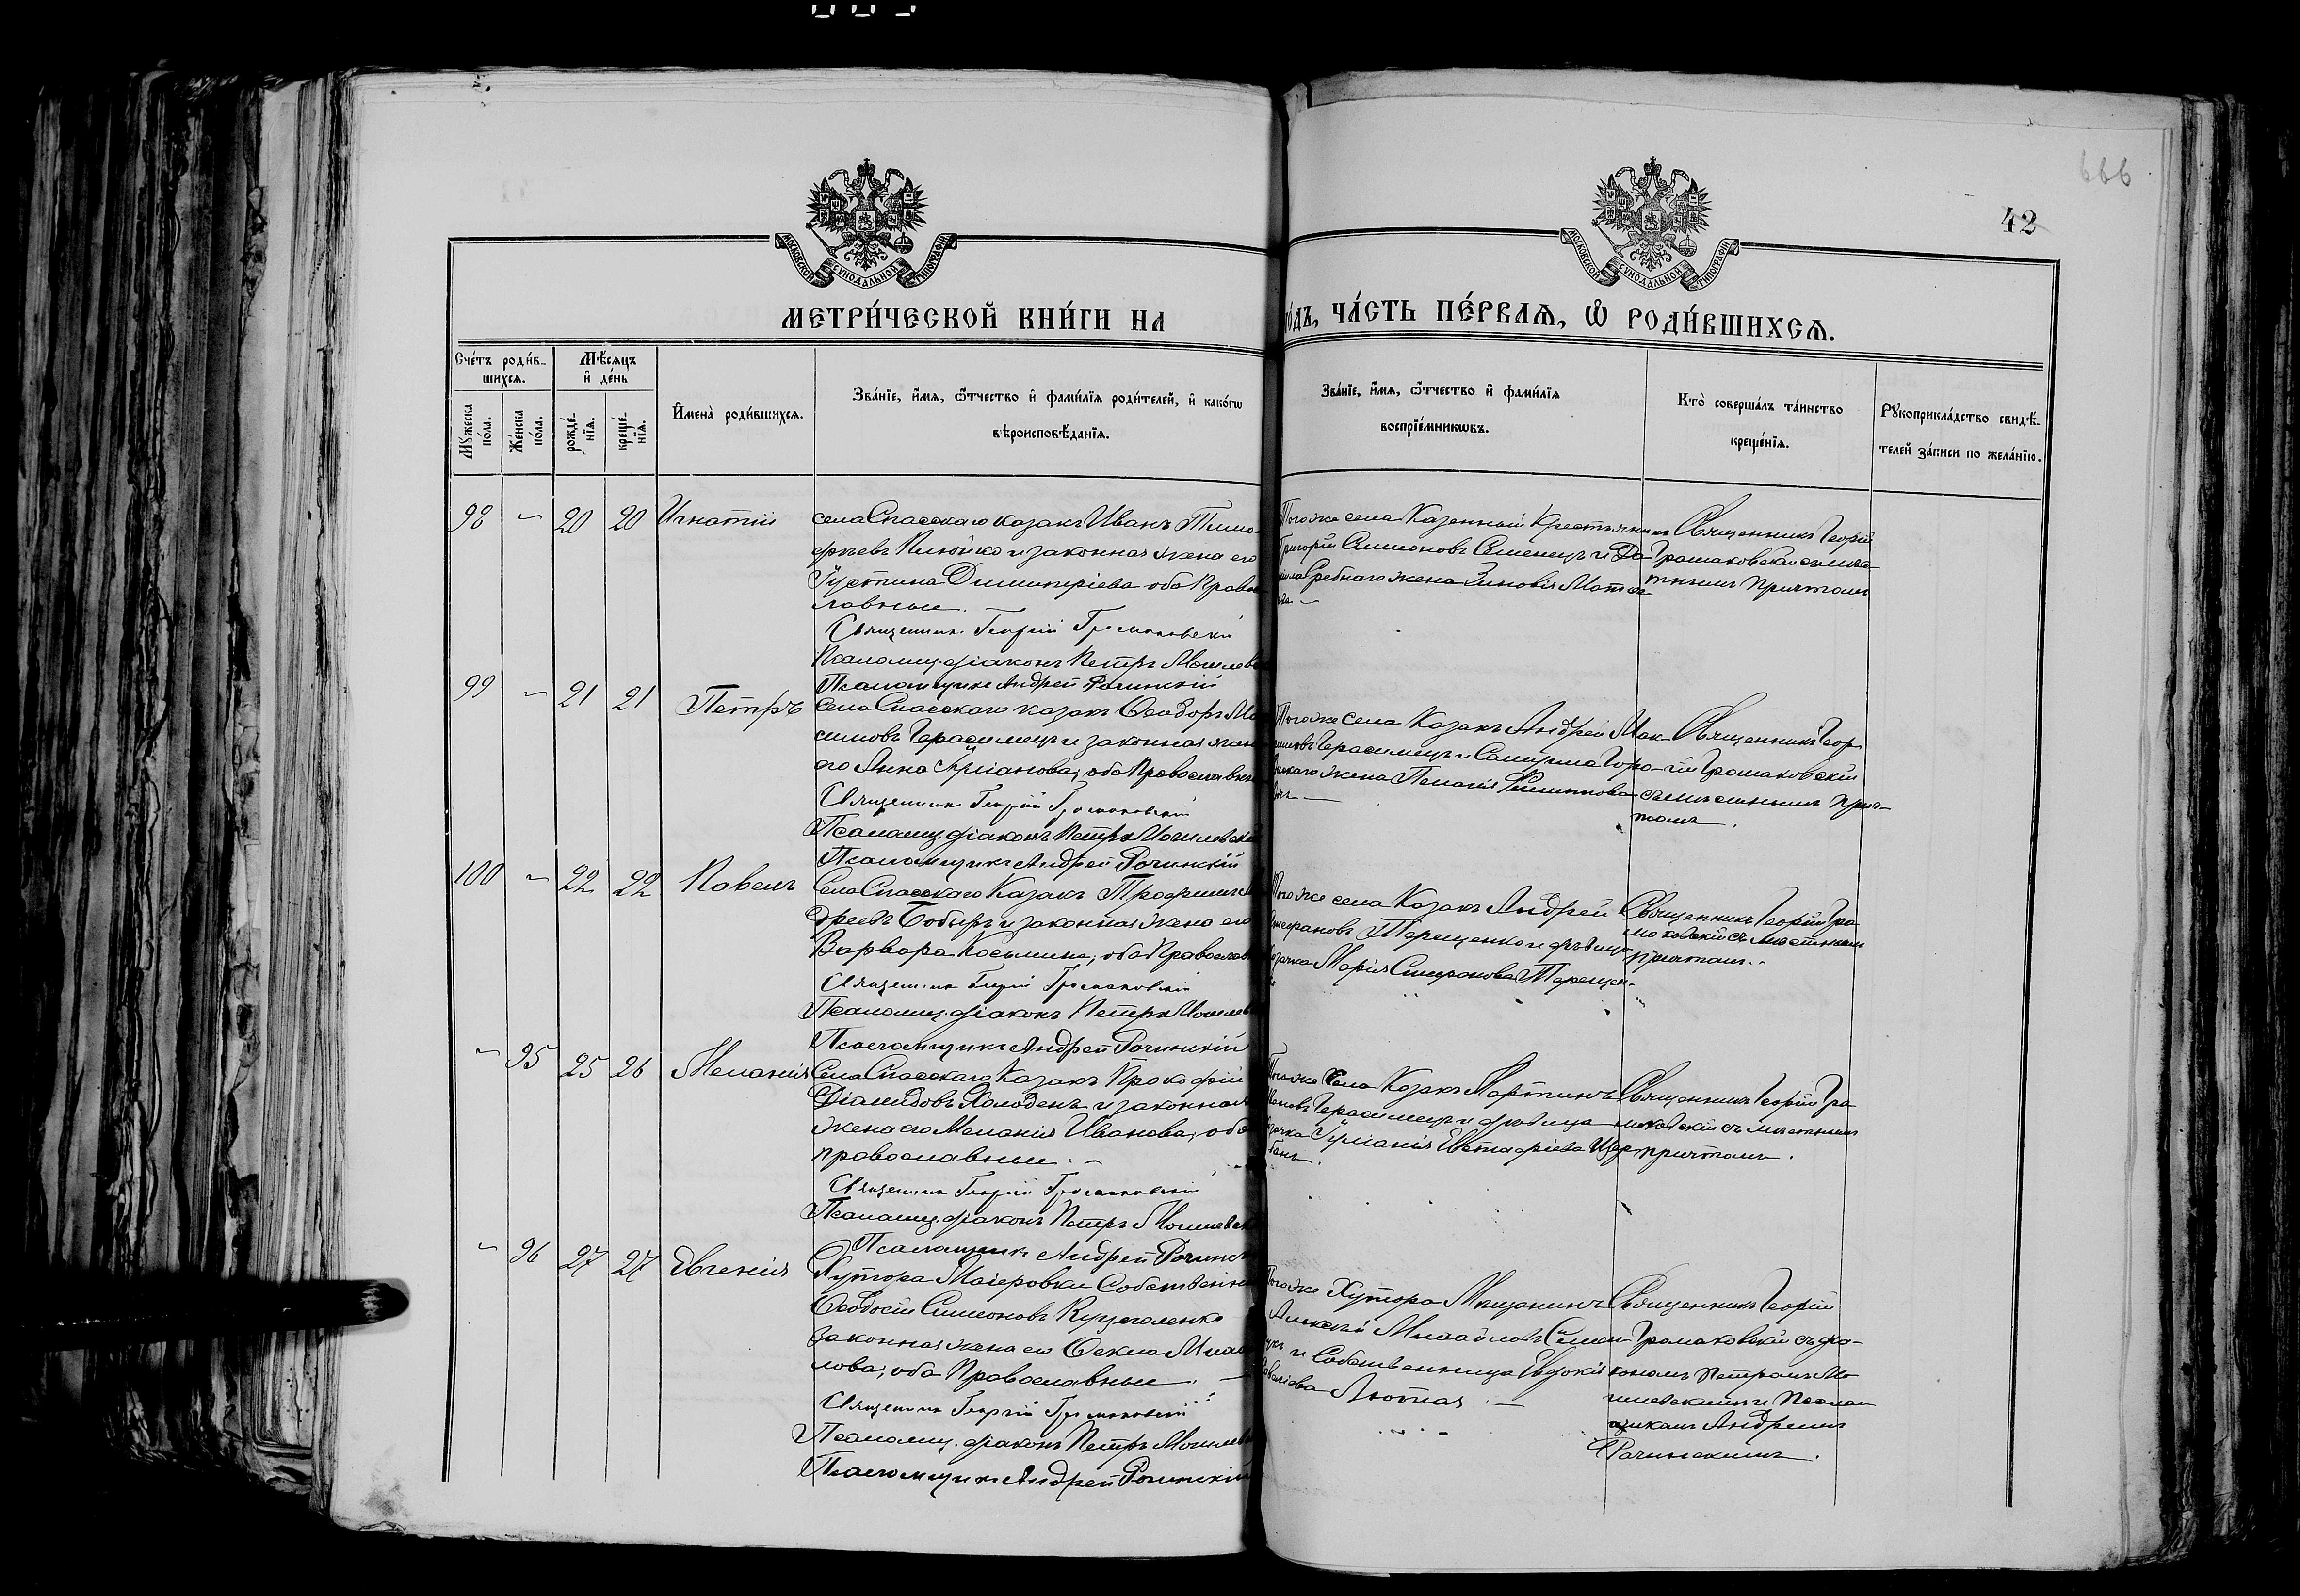 666
42
МОСКОВСКОЙ СѴНОДАЛЬНОЙ ТИПОГРАФІИ
МОСКОВСКОЙ СѴНОДАЛЬНОЙ ТИПОГРАФІИ
МЕТРИ́ЧЕСКОЙ КНИ́ГИ НА
О́ДЪ, ЧА́СТЬ ПЕ́РВАѦ, Ѽ РОДИ́ВШИХСѦ.
Сче́тъ роди́в-
шихсѧ.
Мѣ́сѧцъ
и҆ де́нь
Мꙋжеска по́ла.
Же́нска по́ла.
рожде́-
нїѧ.
креще́-
нїѧ.
И҆мена̀ роди́вшихсѧ.
Зва́нїе, и҆́мѧ, ѻ҆́тчество и҆ фами́лїѧ роди́телей, и҆ како́гѡ
вѣроисповѣ́данїѧ.
Зва́нїе, и҆́мѧ, ѻ҆́тчество и҆ фами́лїѧ
воспрїе́мникѡвъ.
Кто̀ соверша́лъ та́инство
креще́нїѧ.
Рꙋкоприкла́дство свидѣ́-
телей за́писи по жела́нїю.
98 – 20 20 Игнатій
села Спасскаго казакъ Иванъ Тимо-
феевъ и законная жена его
Іустина Димитріева оба Право
славные.
Священникъ Георгій Громаковскій
Псаломщ. діаконъ Петръ Могилев
Псаломщикъ Андрей Рачинскій
Того же села Казенный Крестьянинъ
Григорій Симеоновъ Семенецъ и Да
Гребнаго жена Зиновія
Священникъ Георгій
Громаковскій съ мѣс
тнымъ причтомъ
99 – 21 21 Петръ
Села Спасскаго казакъ Ѳеодоръ Ма
симовъ Герасимецъ и законная жен
его Анна оба Православны
Священникъ Георгій Громаковскій
Псаломщ. діаконъ Петръ Могилевскі
Псаломщикъ Андрей Рачинскій
Того же села Казакъ Андрей Мак
симовъ Герасимецъ и Горо
жена Пелагія Филиппова
Священникъ Геор-
гій Громаковскій
съ мѣстнымъ прич-
томъ.
100 – 22 22 Павелъ
Села Спасскаго Казакъ Трофимъ
дреевъ Бобырь и законная жена его
Варвара Косьмина, оба Православ
Священникъ Георгій Громаковскій
Псаломщ. діаконъ Петръ Могилев
Псаломщикъ Андрей Рачинскій
Того же села Казакъ Андрей
Стефановъ Терещенко и дѣвица
Казачка Марія Стефанова Терещен-
Священникъ Георгій Гро
маковскій съ мѣстнымъ
причтомъ.
– 95 25 26 Меланія
Села Спасскаго Казакъ Прокофій
Діамидовъ Холоденъ и законная
жена его Меланія Иванова, оба
православные.
Священникъ Георгій Громаковскій
Псаломщ. діаконъ Петръ Могилевск
Псаломщикъ Андрей Рачинск
Того же Села Казакъ Мартинъ
Ивановъ Герасимецъ и дѣвица
Казачка Іуліанія Евстафіева Щер
бань.
Священникъ Георгій Гро
маковскій съ мѣстнымъ
причтомъ.
– 96 27 27 Евгенія
Хутора Маіеровки Собственни
Ѳеодосій Симеоновъ Куцеголенко
законная жена его Ѳекла Миха
лова, оба Православные.
Священникъ Георгій Громаковскій
Псаломщ. діаконъ Петръ Могилев
Псаломщикъ Андрей Рачинскій
Того же Хутора Мещанинъ
Алексѣй Михайловъ
и Собственница Евдокія
Лютая.
Священникъ Георгій
Громаковскій съ діа-
кономъ Петромъ Мо
гилевскимъ и Псалом
щикомъ Андреемъ
Рачинскимъ.